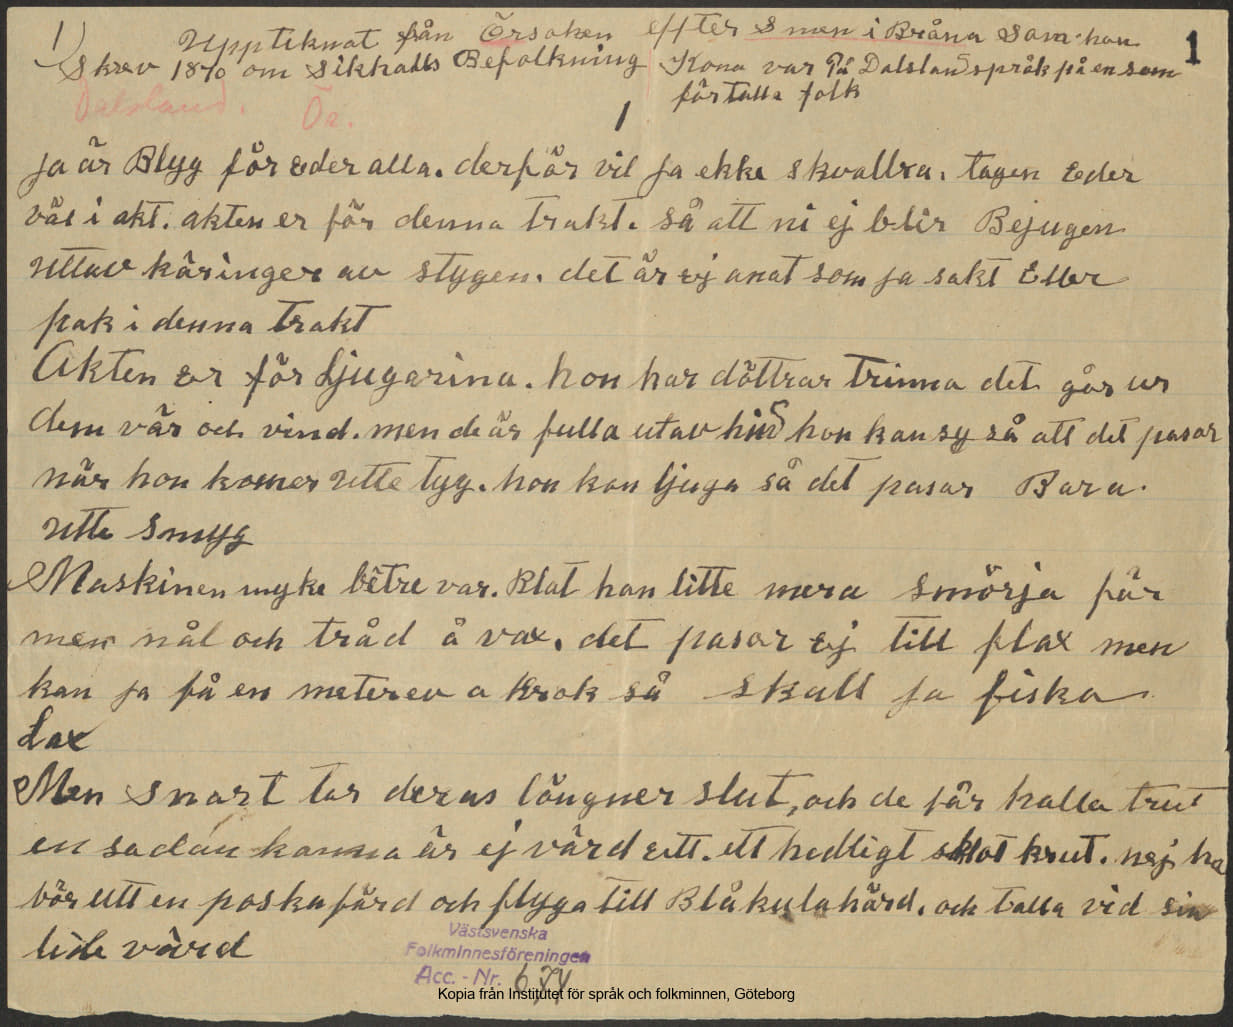 1) Uppteknat från Örsoken efter Smen i Bråna Som han
1
Skrev 1870 om Sikhalls Befolkning Kona var På Dalslandspråk på en som
förtalla folk
Dalsland. Ör.
1
ja är Blyg för eder alla. derför vil ja ekke skvallra. tagen Eder
väl i akt. akten er för denna trakt. så att ni ej blir Bejugen
uttav käringer av stygen. det är ej anat som ja sakt Eller
pak i denna trakt
Akten er för Ljugarina. hon har döttrar trinna det går ur
dem vär och vind. men de är fulla utav hin hon kan sy så att det pasar
når hon komer utte tyg. hon kan ljuga så det pasar Bara
utte smyg
Maskinen myke bêtre var. Blot han litte mera smörja får
men nål och tråd å vax. det pasar ej till flax men
kan ja få en meterev a krok så skall ja fiska
Lax
Men snart tar deras lôngner slut, och de får halla trut
en sadan kanna är ej värd ett. ett hedligt skot krut. nej ha
bör utt en poskafärd och flyga till Blåkulahärd. och talla vid sin
lide värd
Västsvenska
Folkminnesföreningen
Acc. - Nr. 674
Kopia från Institutet för språk och folkminnen, Göteborg